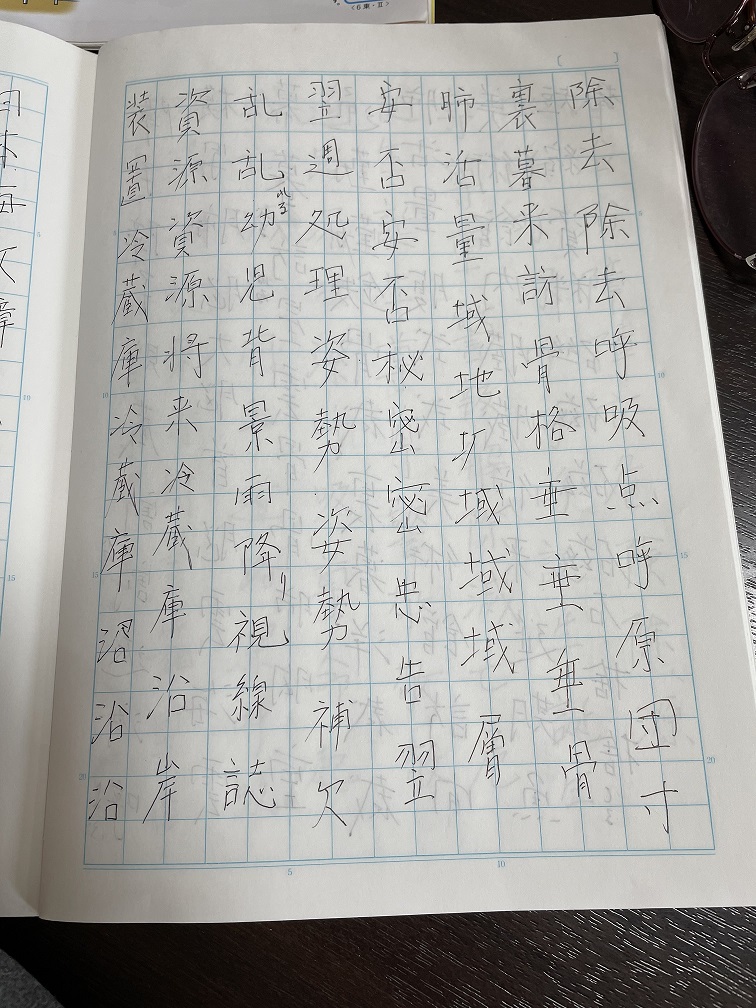 除去除去呼吸点呼原因寸
裏暮来訪骨格垂垂垂骨
肺活量域地域域域層
安否安否秘密密忠告翌
翌週処理姿勢姿勢補欠
乱乱れる幼児背景雨降り視線誌
資源資源将来冷蔵庫沿岸
装置冷蔵庫冷蔵庫沿沿沿